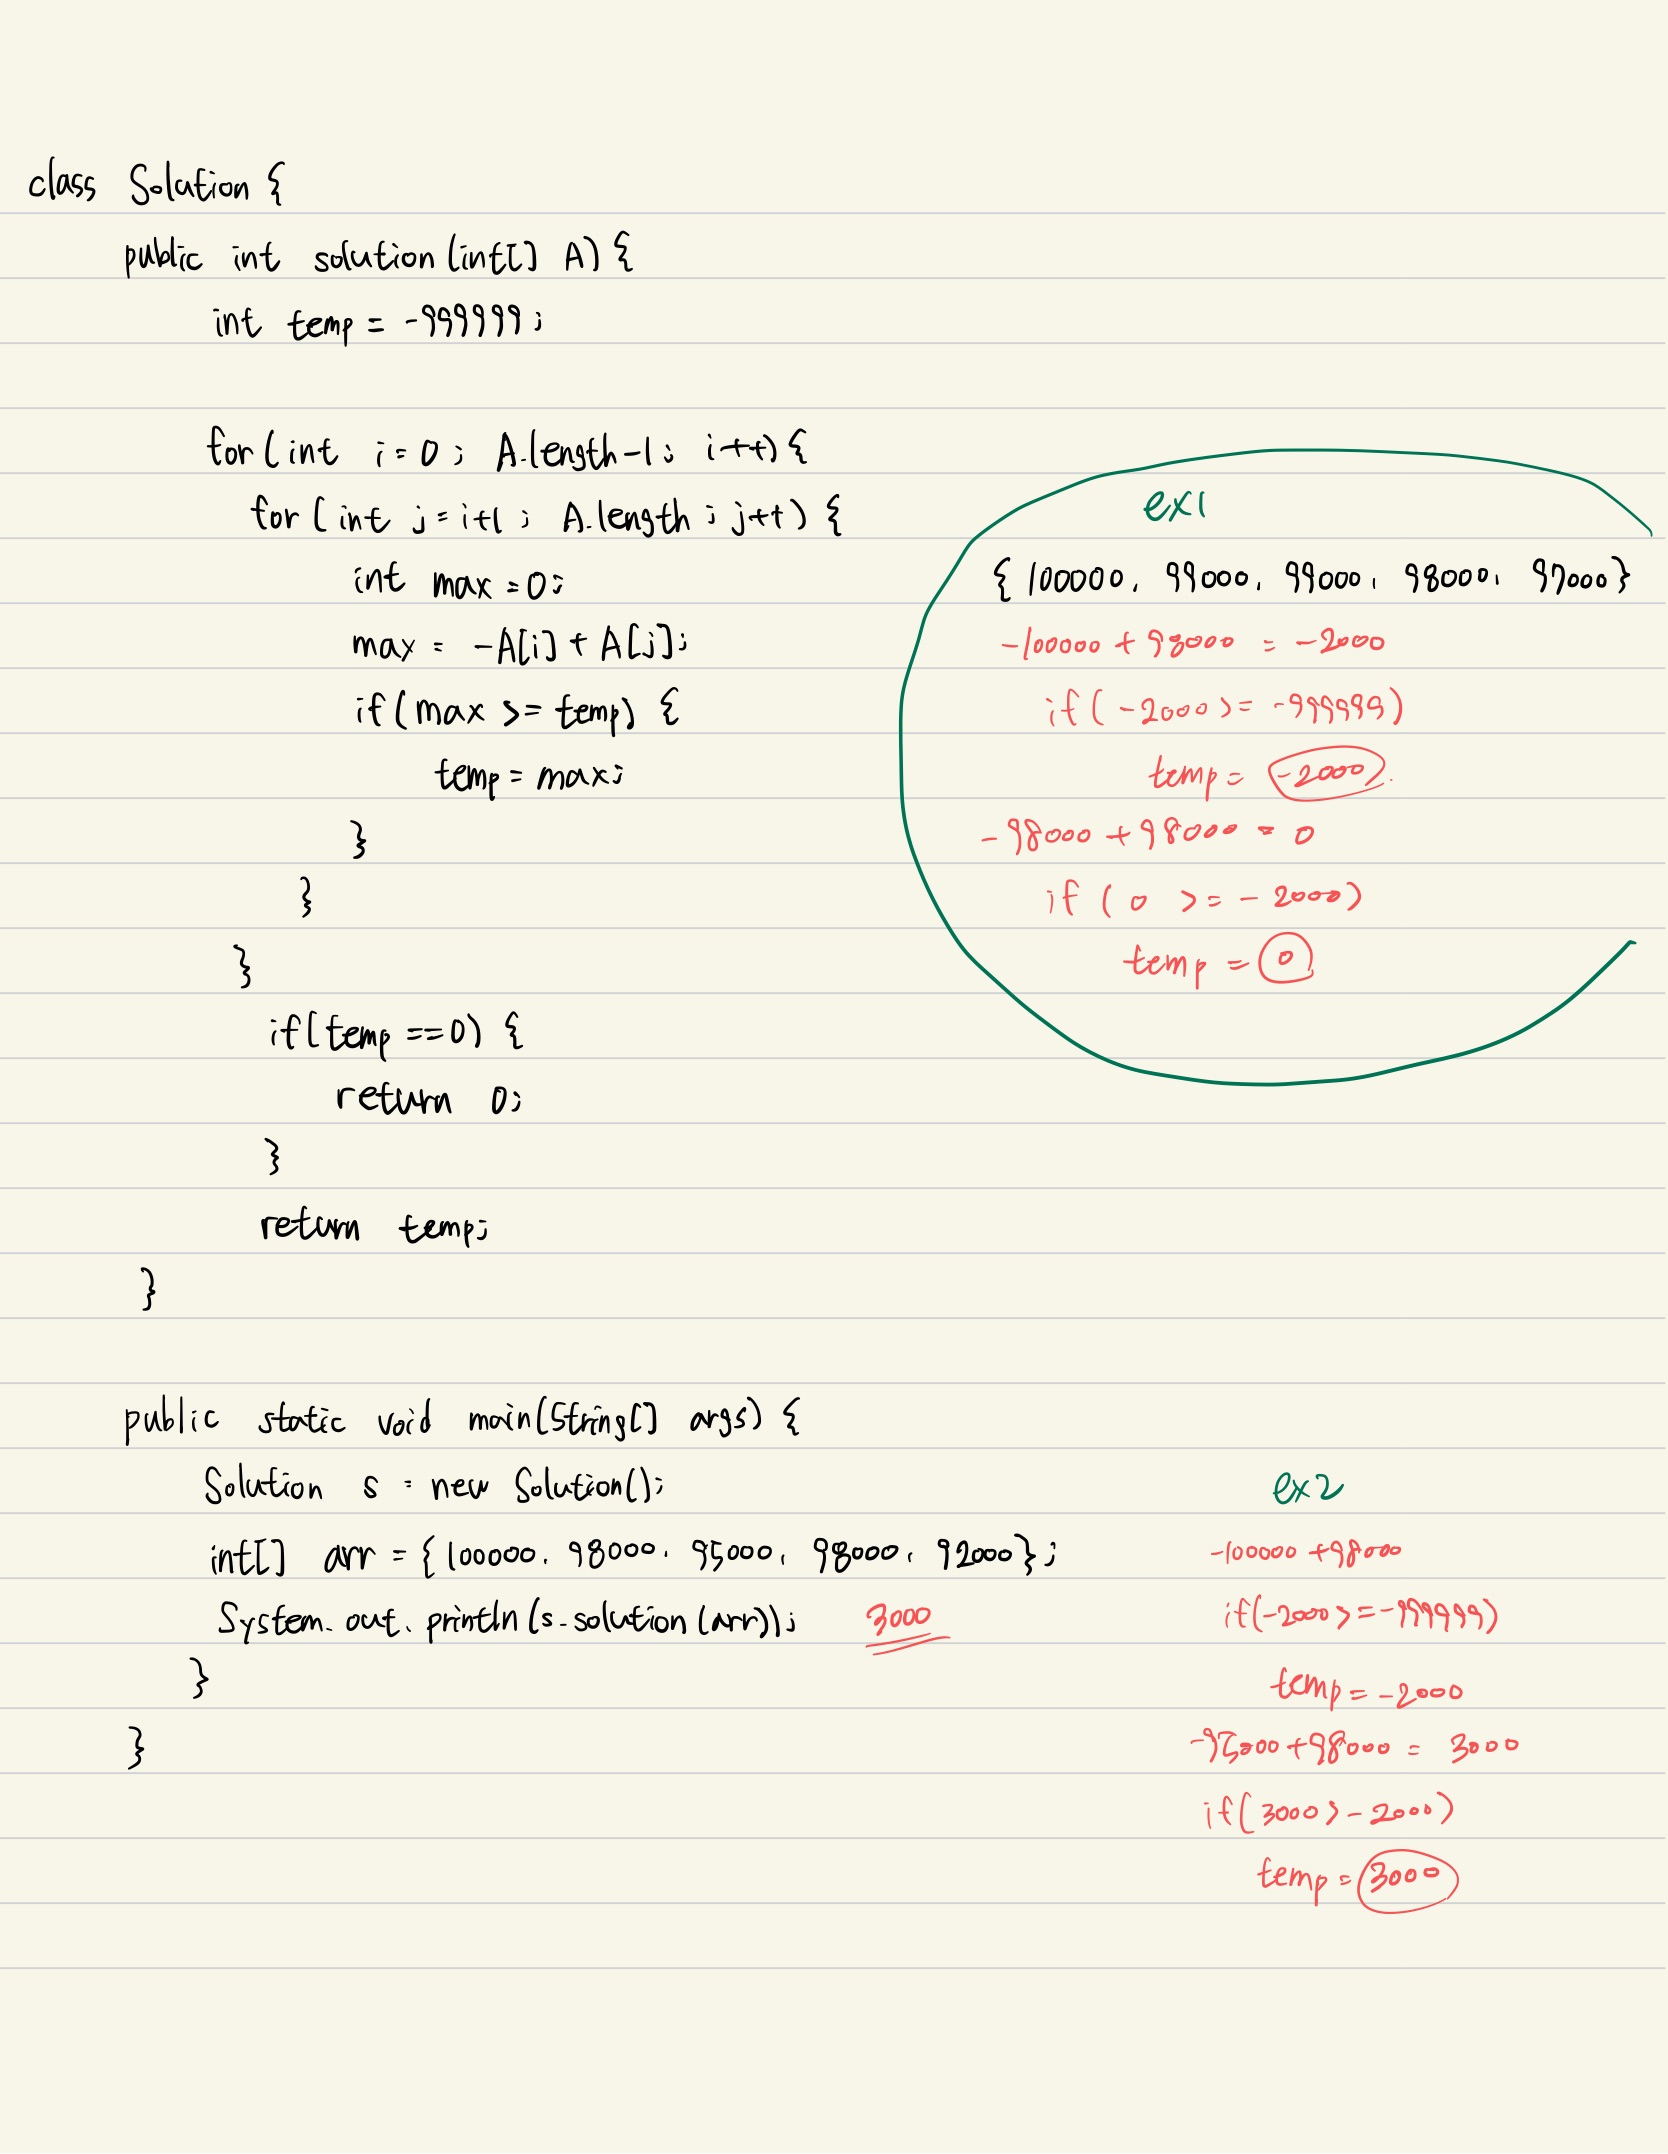 class Solution {
public int solution(int[] A) {
int temp = -999999;
for(int i=0; A.length-1; i++){
for(int j=i+1; A.length; j++) {
int max=0;
max = -A[i] + A[j];
if(max >= temp) {
temp = max;
}
}
}
if(temp ==0) {
return 0;
}
return temp;
}
ex1
{ 100000, 99000, 99000, 98000, 97000}
-100000 + 98000 = -2000
if( -2000 >= -999999)
temp = -2000
-98000 + 98000 = 0
if ( 0 >= - 2000)
temp = 0
public static void main(String[] args) {
Solution s = new Solution();
int[] arr = {100000, 98000, 95000, 98000, 92000};
System.out.println(s.solution(arr)); 3000
}
}
ex2
-100000 +98000
if(-2000 >= -999999)
temp = -2000
-95000 +98000 = 3000
if(3000 > -2000)
temp = 3000